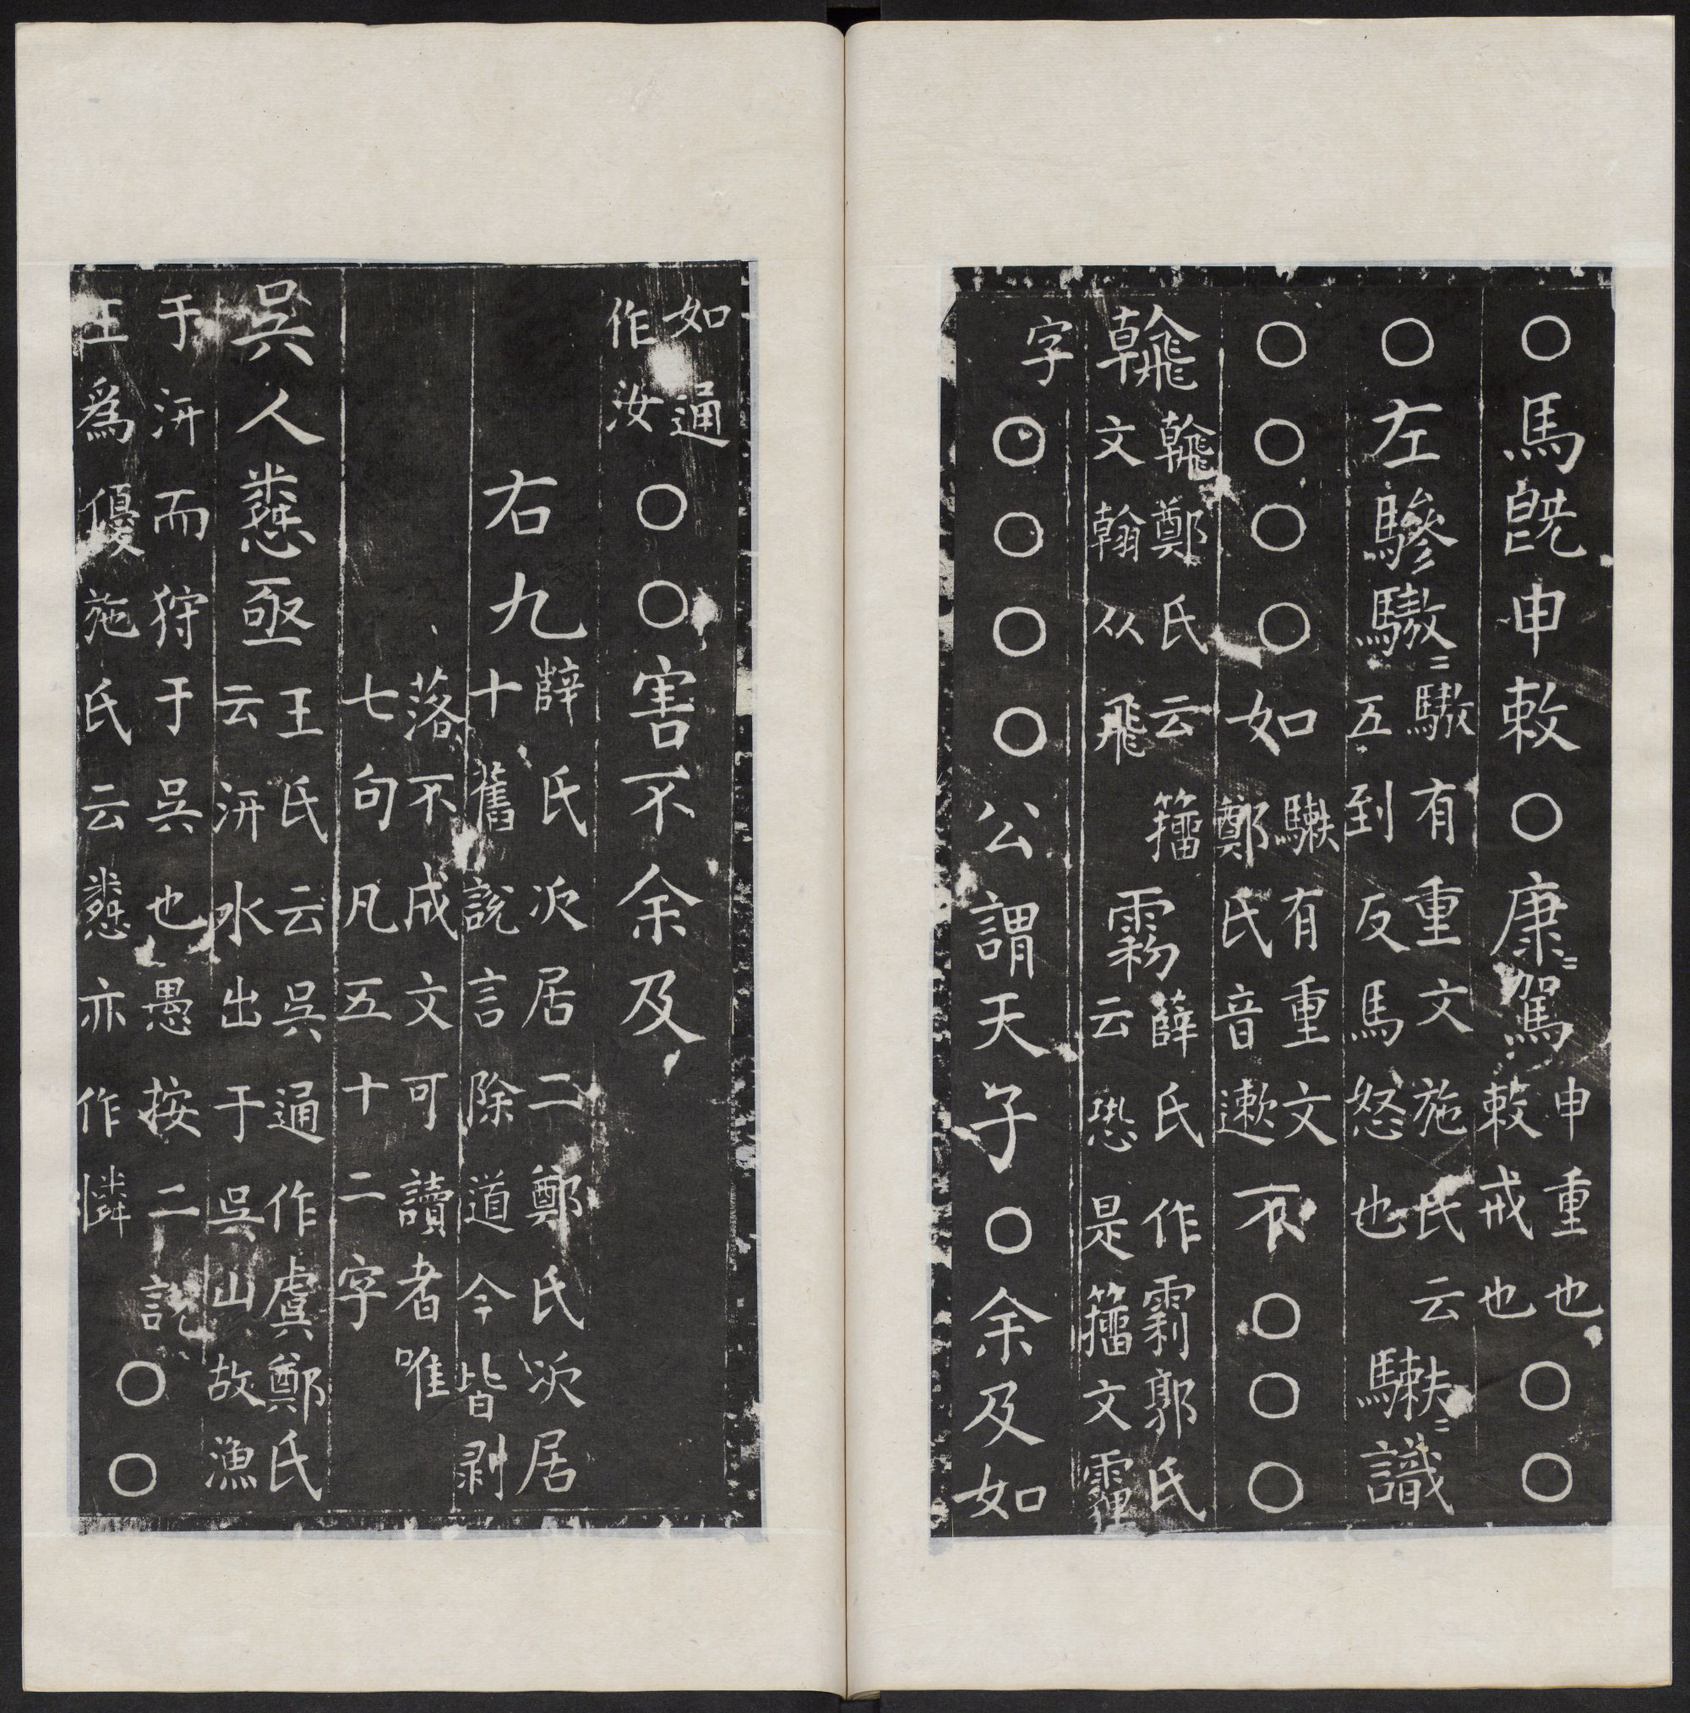 ○馬既申敕○康〻駕申重也敕戒也○○
○左驂驐〻驐有重文施氏云五到反馬怒也𩧉〻識
○○○○如𩧉有重文鄭氏音遬不○○○
𩙺𩙺鄭氏云籀文翰从飛霧薛氏作𩃬郭氏云恐是籀文霾
字○○○○公謂天子○余及如
如通作汝○○害不余及
右九薛氏次居二鄭氏次居十舊說言除道今皆剥
落不成文可讀者唯七句凡五十二字
吳人憐亟王氏云吳通作虞鄭氏云汧水出于吳山故漁
于汧而狩于吳也愚按二說王爲優施氏云憐亦作憐○○